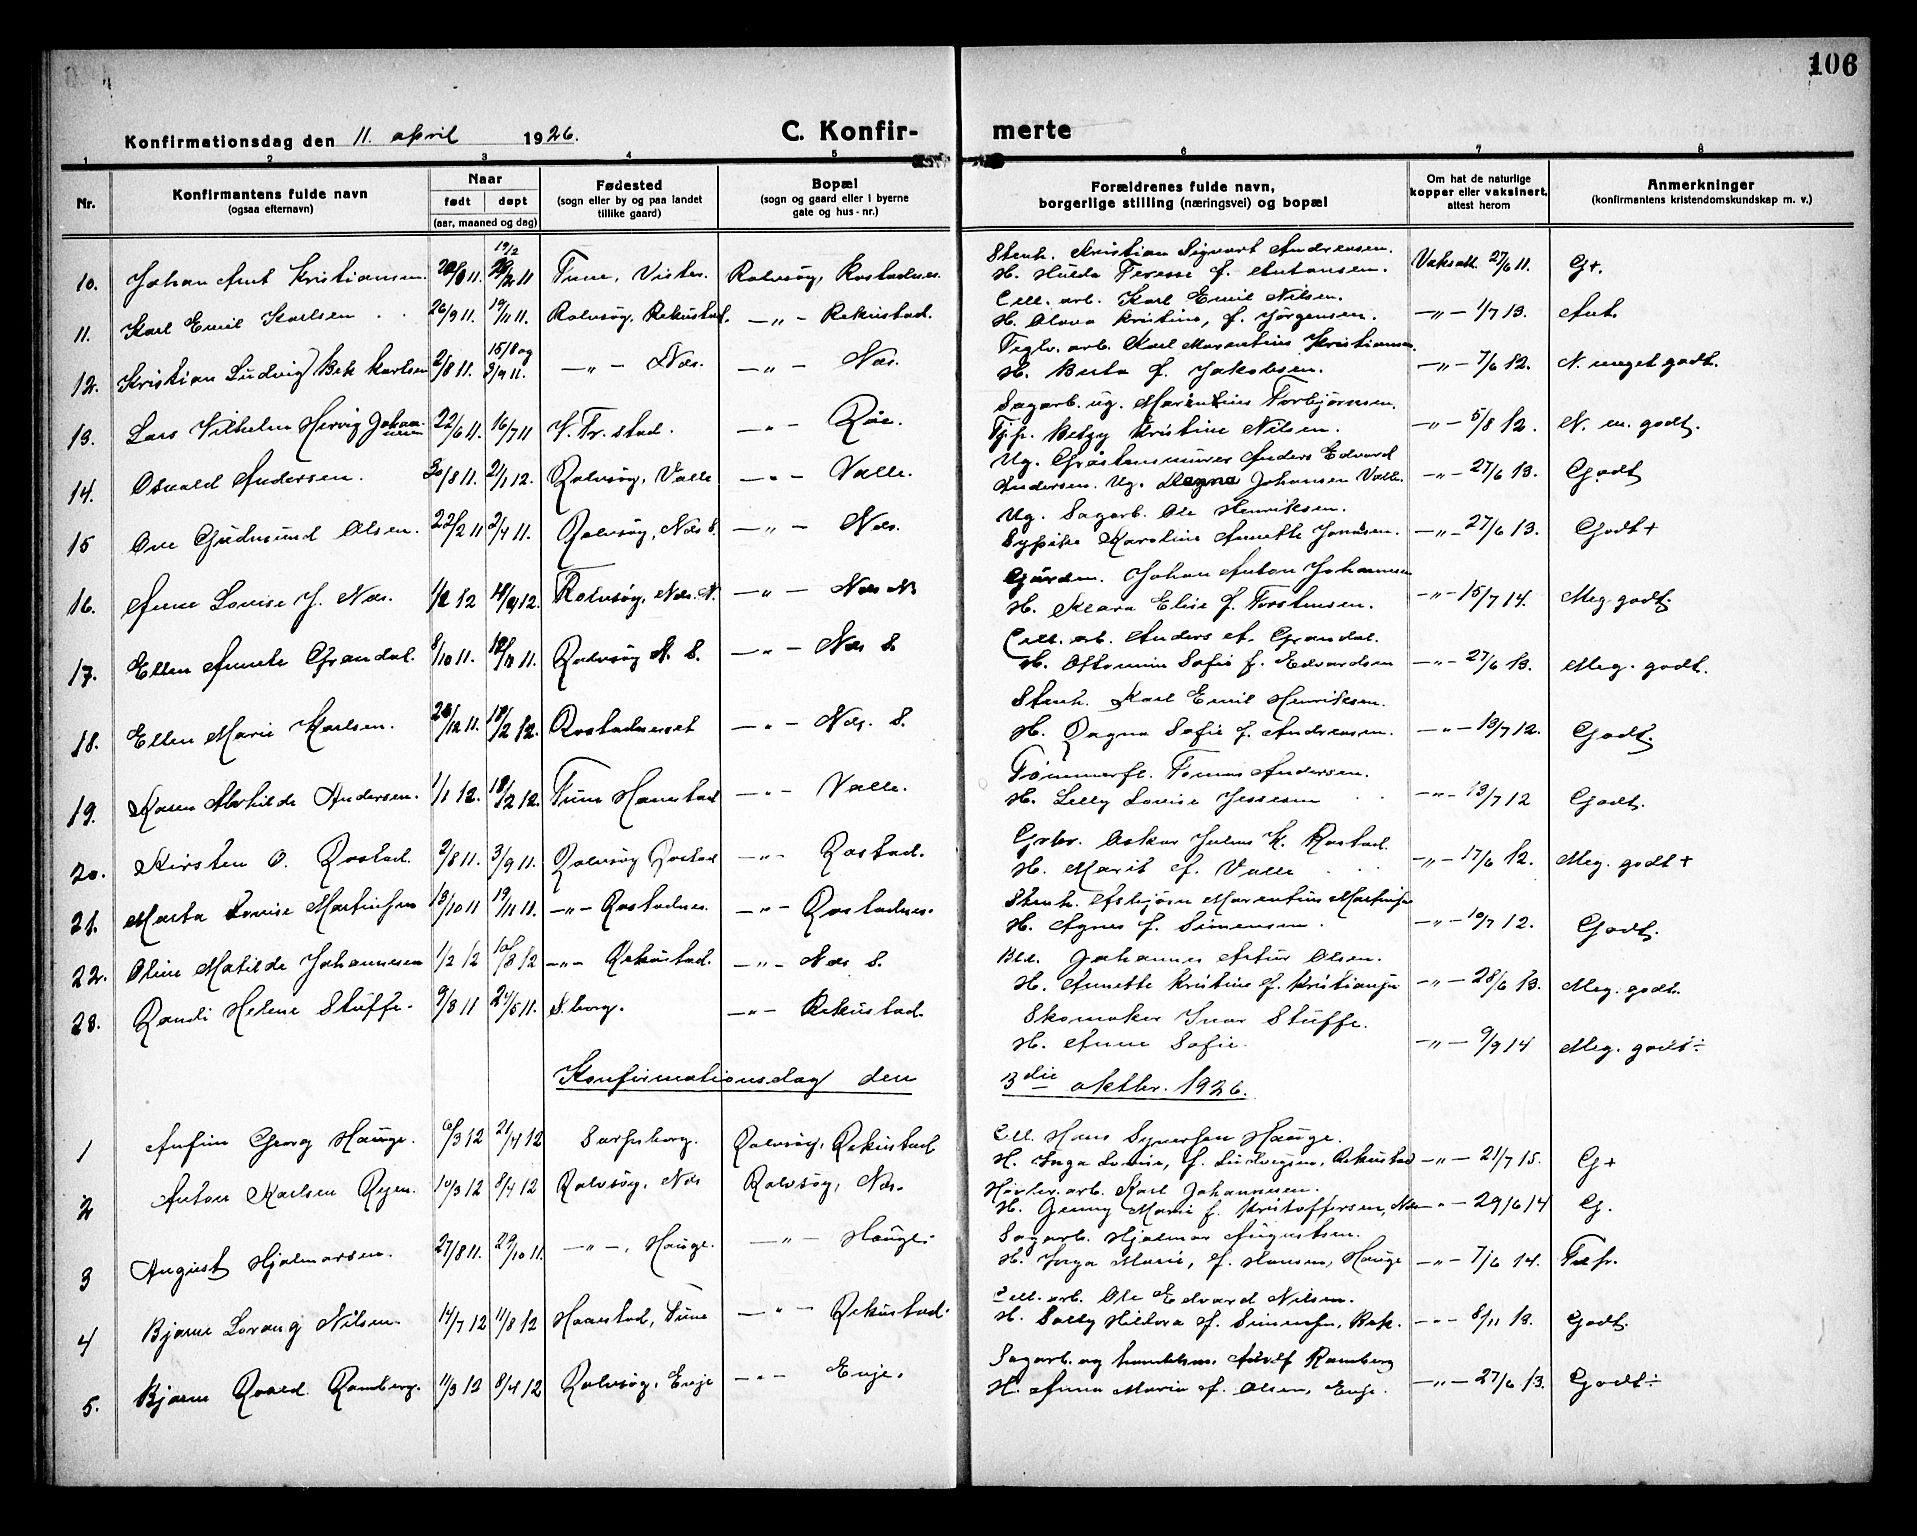 106
Konfirmationsdag den 11. april 1926. C. Konfirmerte
1 2 3 4 5 6 7 8
Nr. Konfirmantens fulde navn (ogsaa efternavn) Naar født døpt (aar, maaned og dag) Fødested (sogn eller by og paa landet tillike gaard) Bopæl (sogn og gaard eller i byerne gate og hus-nr.) Forældrenes fulde navn, borgerlige stilling (næringsvei) og bopæl Om hat de naturlige kopper eller vaksinert, attest herom Anmerkninger (konfirmantens kristendomskundskap m. v.)
Stenh. Kristian Sigvart Andreasen.
10. Johan Arnt Kristiansen Tune, Vister. Rolvsøy, Rostadnes. H. Hulda Terese f. Antonsen. Vaksatt. 27/6 11. G+.
Cell. arb. Karl Emil Nilsen.
11. Karl Emil Karlsen 26/9 11. 19/11 11. Rolvsøy, Rekustad. —"— Rekustad. H. Olava Kristine, f. Jørgensen. —"— 1/7 13.
Teglv. arb. Karl Marentius Kristiansen
12. Kristian Ludvig Bek Karlsen 2/8 11. 15/8 og 3/9 11. —"— Næs. —"— Næs. H. Berta f. Jakobsen. —"— 7/6 12. N. meget godt.
Sagarb. ug. Marentius Torbjørnsen.
13. Lars Vilhelm Hervig Johannesen 22/6 11. 16/7 11 K. Fr. stad. —"— Røe. Tj.p. Betzy Kristine Nilsen. —"— 5/8 12. N. m. godt.
Ug. Gråstensmurer Anders Edvard
14. Osvald Andersen. 30/8 11. 21/1 12. Rolvsøy, Valle —"— Valle. Andersen. Ug. Magna Johansen Valle. —"— 27/6 13. Godt
Ug. Sagarb. Ole Henriksen.
15 Ove Gudmund Olsen. 22/2 11 2/4 11. Rolvsøy, Næs S. —"— Næs. Sypike Karoline Annette Jonsen. —"— 27/6 13. Godt+
Gårdm. Johan Anton Johannesen
16. Anne Lovise J. Næs. Rolvsøy, Næs. N. —"— Næs N H. Klara Elise f. Torstensen. —"— 15/7 14. Meg. godt.
Cell. arb. Anders A. Grandal.
17. Ellen Annete Grandal. 8/10 11. Rolvsøy N. S. —"— Næs S. H. Ottomine Sofie f. Edvardsen —"— 27/6 13. Meg. godt.
Stenh. Karl Emil Henriksen.
18. Ellen Marie Karlsen. 18/2 12. Rostadneset —"— Næs. S. H. Dagna Sofie f. Andreasen. —"— 13/7 12. Godt.
Tømmerfl. Tomas Andersen.
19. Karen Alvhilde Andersen. 1/1 12. 18/2 12. Tune Hannestad —"— Valle. H. Lilly Lovise Jessesen —"— 13/7 12 Godt.
Grbr. Oskar Julius K. Rostad.
20. Kirsten O. Rostad. 2/8 11. 3/9 11. Rolvsøy Rostad —"— Rostad. H. Marit f. Valle —"— 17/6 12. Meg. godt+
Stenh. Asbjørn Marentius Martinsen
21. Marta Lovise Martinsen 13/10 11 19/11 11. —"— Rostadnes. —"— Rostadnes. H. Agnes f. Simensen. —"— 10/7 12. Godt.
Johannes Artur Olsen.
22. Oline Matilde Johannesen 1/2 12 —"— Rekustad. —"— Næs S. H. Annette Kristine f. Kristiansen —"— 28/6 13. Meg. godt.
Skomaker Ivar Stuffe.
23. Randi Helene Stuffe. 9/3 11 21/5 11. S.borg. —"— Rekustad. H. Anne Sofie. —"— 9/9 14 Meg. godt÷
Konfirmationsdag den 3die oktbr. 1926.
Cell. Hans Syversen Hauge.
1 Anfinn Georg Hauge. 6/3 12 21/4 12 Sarpsborg. Rolvsøy, Rekustad H. Inga Lovise, f. Ludvigsen, Rekustad —"— 21/7 15. G+
Høvler.arb. Karl Johannesen.
2 Anton Karlsen Ryen. 10/3 12 8/4 12 Rolvsøy, Næs Rolvsøy, Næs. H. Jenny Marie f. Kristoffersen, Næs —"— 29/6 14 G.
Sagarb. Hjalmar Augustsen.
3 August Hjalmarsen. 27/8 11. 29/10 11. —"—, Hauge. —"— Hauge. H. Inga Marie, f. Hansen, Hauge —"— 7/6 14.
Cell. arb. Ole Edvard Nilsen.
4 Bjarne Lorang Nilsen. 14/7 12 11/8 12 Haanstad, Tune —"— Rekustad. H. Sally Hildora f. Simensen, Rek. —"— 8/11 13. Godt.
Sagarb. og handelsm. Adolf Ramberg
5. Bjarne Roald Ramberg. 11/3 12 8/4 12 Rolvsøy, Enje —"— Enje. H. Anna Marie f. Olsen, Enje. —"— 27/6 13. Godt÷